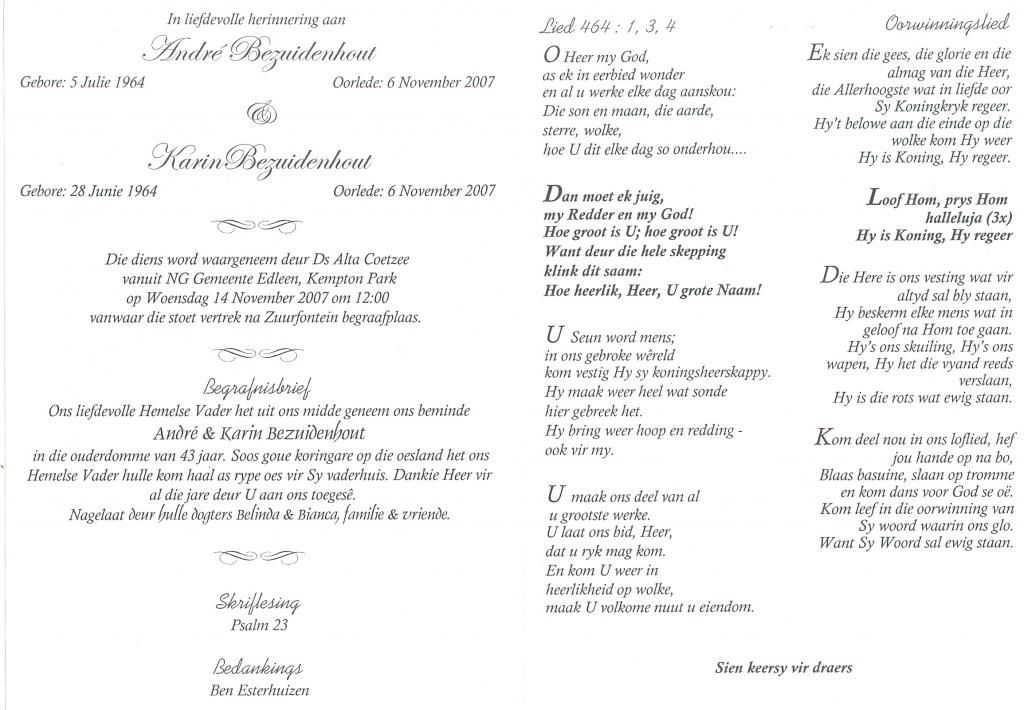 In liefdevolle herinnering aan
André Bezuidenhout
Gebore: 5 Julie 1964 Oorlede: 6 November 2007
&
Karin Bezuidenhout
Gebore: 28 Junie 1964 Oorlede: 6 November 2007
Die diens word waargeneem deur Ds Alta Coetzee
vanuit NG Gemeente Edleen, Kempton Park
op Woensdag 14 November 2007 om 12:00
vanwaar die stoet vertrek na Zuurfontein begraafplaas.
Begrafnisbrief
Ons liefdevolle Hemelse Vader het uit ons midde geneem ons beminde
André & Karin Bezuidenhout
in die ouderdomme van 43 jaar. Soos goue koringare op die oesland het ons
Hemelse Vader hulle kom haal as rype oes vir Sy vaderhuis. Dankie Heer vir
al die jare deur U aan ons toegesê.
Nagelaat deur hulle dogters Belinda & Bianca, familie & vriende.
Skriflesing
Psalm 23
Bedankings
Ben Esterhuizen
Lied 464 : 1, 3, 4
O Heer my God,
as ek in eerbied wonder
en al u werke elke dag aanskou:
Die son en maan, die aarde,
sterre, wolke,
hoe U dit elke dag so onderhou....
Dan moet ek juig,
my Redder en my God!
Hoe groot is U; hoe groot is U!
Want deur die hele skepping
klink dit saam:
Hoe heerlik, Heer, U grote Naam!
U Seun word mens;
in ons gebroke wêreld
kom vestig Hy sy koningsheerskappy.
Hy maak weer heel wat sonde
hier gebreek het.
Hy bring weer hoop en redding -
ook vir my.
U maak ons deel van al
u grootste werke.
U laat ons bid, Heer,
dat u ryk mag kom.
En kom U weer in
heerlikheid op wolke,
maak U volkome nuut u eiendom.
Oorwinningslied
Ek sien die gees, die glorie en die
almag van die Heer,
die Allerhoogste wat in liefde oor
Sy Koningkryk regeer.
Hy't belowe aan die einde op die
wolke kom Hy weer
Hy is Koning, Hy regeer.
Loof Hom, prys Hom
halleluja (3x)
Hy is Koning, Hy regeer
Die Here is ons vesting wat vir
altyd sal bly staan,
Hy beskerm elke mens wat in
geloof na Hom toe gaan.
Hy's ons skuiling, Hy's ons
wapen, Hy het die vyand reeds
verslaan,
Hy is die rots wat ewig staan.
Kom deel nou in ons loflied, hef
jou hande op na bo,
Blaas basuine, slaan op tromme
en kom dans voor God se oë.
Kom leef in die oorwinning van
Sy woord waarin ons glo.
Want Sy Woord sal ewig staan.
Sien keersy vir draers